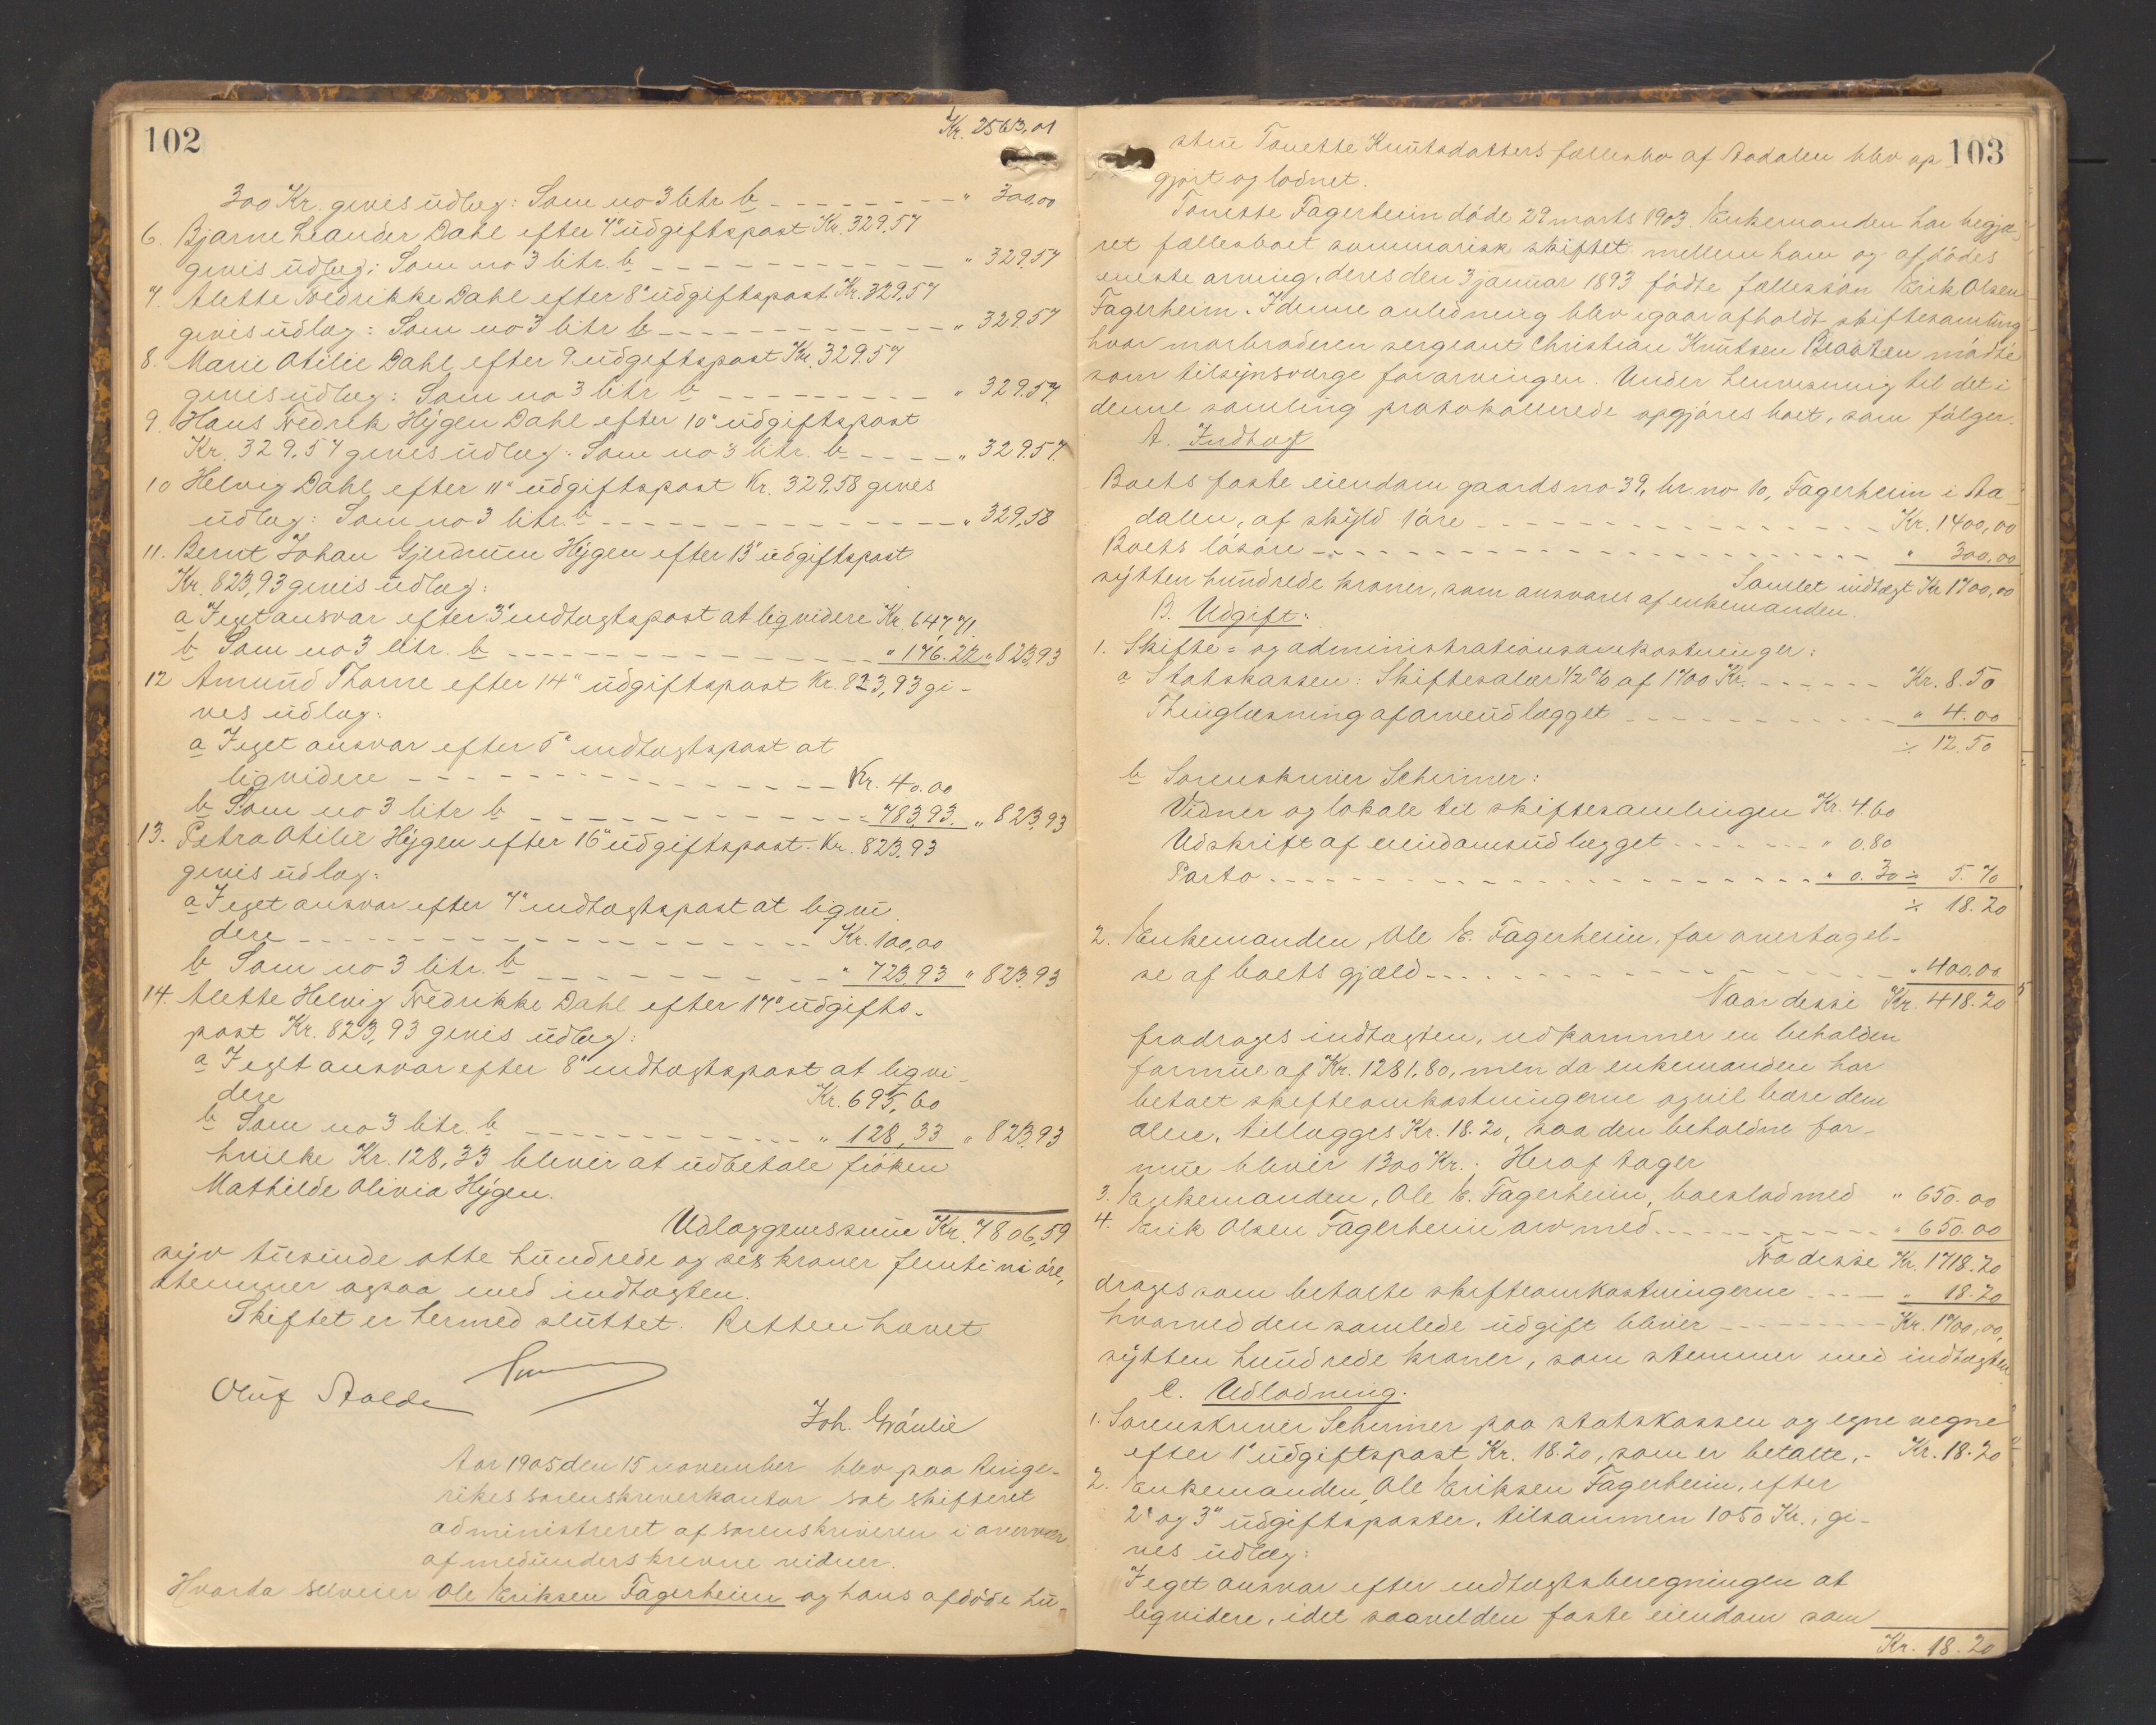 102
Kr. 2563,01
300 Kr. gives udlæg: Som no 3 litr b - - - - - - " 300,00
6. Bjarne Leander Dahl efter 7" udgiftspost Kr. 329,57
gives udlæg: Som no 3 litr. b - - - - - - " 329,57
7. Alette Fredrikke Dahl efter 8" udgiftspost Kr. 329,57
gives udlæg: Som no 3 litr b - - - - - - " 329,57
8. Marie Otilie Dahl efter 9 udgiftspost Kr. 329.57
gives udlæg: Som no 3 litr b - - - - - - " 329.57.
9. Hans Fredrik Hýgen Dahl efter 10" udgiftspost
Kr. 329,57 gives udlæg: Som no 3 litr. b - - - - " 329.57.
10 Helvig Dahl efter 11" udgiftspost Kr. 329,58 gives
udlæg: Som no 3 litr. b - - - - - - " 329,58
11. Bernt Johan Gjerdrum Hýgen efter 13" udgiftspost
Kr. 823,93 gives udlæg:
a I eget ansvar efter 3" indtægtspost at liqvidere Kr. 647,71.
b Som no 3 litr. b - - - - - - " 176.22 " 823,93
12 Amund Thorne efter 14" udgiftspost Kr. 823,93 gi-
ves udlæg:
a I eget ansvar efter 5" indtægtspost at
liqvidere - - - - - - Kr. 40.00
b Som no 3 litr b - - - - - - " 783,93. " 823,93
13. Petra Otilie Hýgen efter 16" udgiftspost. Kr. 823,93
gives udlæg:
a I eget ansvar efter 7" indtægtspost at liqvi
dere - - - - - - Kr. 100,00
b Som no 3 litr. b - - - - - - " 723,93 " 823,93
14. Alette Helvig Fredrikke Dahl efter 17" udgifts-
post Kr. 823,93 gives udlæg:
a I eget ansvar efter 8" indtægtspost at liqvi-
dere Kr. 695,60
b Som no 3 litr. b - - - - - - " 128,33 " 823,93
hvilke Kr. 128,33 bliver at udbetale frøken
Mathilde Olivia Hýgen.
Udlæggenes sum Kr. 7806,59
syv tusinde otte hundrede og sex kroner femti ni øre,
stemmer ogsaa med indtægten.
Skiftet er hermed sluttet. Retten hævet
Oluf Stalde
Joh. Gráulie
Aar 1905 den 15 november blev paa Ringe-
rikes sorenskriverkontor sat skifteret
administreret af sorenskriveren i overvær
af medunderskrevne vidner.
Hvorda selveier Ole Eriksen Fagerheim og hans afdøde hu-
103
stru Tonette Knutsdatters fællesbo af Aadalen blev op
gjort og lodnet.
Tonette Fagerheim døde 29 marts 1903. Enkemanden har begjæ-
ret fællesboet summarisk skiftet mellem ham og afdødes
eneste arving, deres den 3 januar 1893 fødte fællessøn Erik Olsen
Fagerheim. I denne anledning blev igaar afholdt skiftesamling
hvor morbroderen sergeant Christian Knutsen Braaten mødte
som tilsýnsværge for arvingen. Under henvisning til det i
denne samling protokollerede opgjøres boet, som følger.
A. Indtægt
Boets faste eiendom gaardsno 39, br no 10, Fagerheim i Aa
dalen, af skýld 1 øre - - - - - - Kr. 1400,00
Boets løsøre - - - - - - " 300,00
Samlet indtægt Kr 1700,00
sýtten hundrede kroner, som ansvares af enkemanden.
B. Udgift:
1. Skifte= og administrationsomkostninger:
a Statskassen: Skiftesalær 1/2 % af 1700 Kr. - - - - - - Kr. 8.50
Thinglæsning af arveudlægget - - - - - - " 4.00
÷ 12.50
b Sorenskriver Schirmer:
Vidner og lokale til skiftesamlingen Kr. 4.60
Udskrift af eiendomsudlægget - - - - - - " 0.80
Porto - - - - - - " 0.30 ÷ 5.70
÷ 18.20
2. Enkemanden, Ole E. Fagerheim, for overtagel-
se af boets gjæld - - - - - - " 400.00
Naar disse Kr. 418.20
fradrages indtægten, udkommer en beholden
formue af Kr. 1281,80, men da enkemanden har
betalt skifteomkostningerne og vil bære dem
alene, tillægges Kr. 18.20, saa den beholdne for-
mue blivir 1300 Kr.; Heraf tager
3. Enkemanden, Ole E. Fagerheim, boeslod med " 650.00
4. Erik Olsen Fagerheim arv med - - - - - - " 650.00
Fra disse Kr. 1718.20
drages som betalte skifteomkostningerne - - - - " 18.20
hvorved den samlede udgift bliver - - - - - - Kr. 1700,00,
sýtten hundrede kroner, som stemmer med indtægten.
C. Udlodning.
1. Sorenskriver Schirmer paa statskassen og egne vegne
efter 1" udgiftspost Kr. 18.20, som er betalte, - Kr. 18.20
2. Enkemanden, Ole Eriksen Fagerheim, efter
2" og 3" udgiftsposter, tilsammen 1050 Kr., gi-
ves udlæg:
I eget ansvar efter indtægtsberegningen at
liqvidere, idet saavel den faste eiendom som
Kr. 18.20